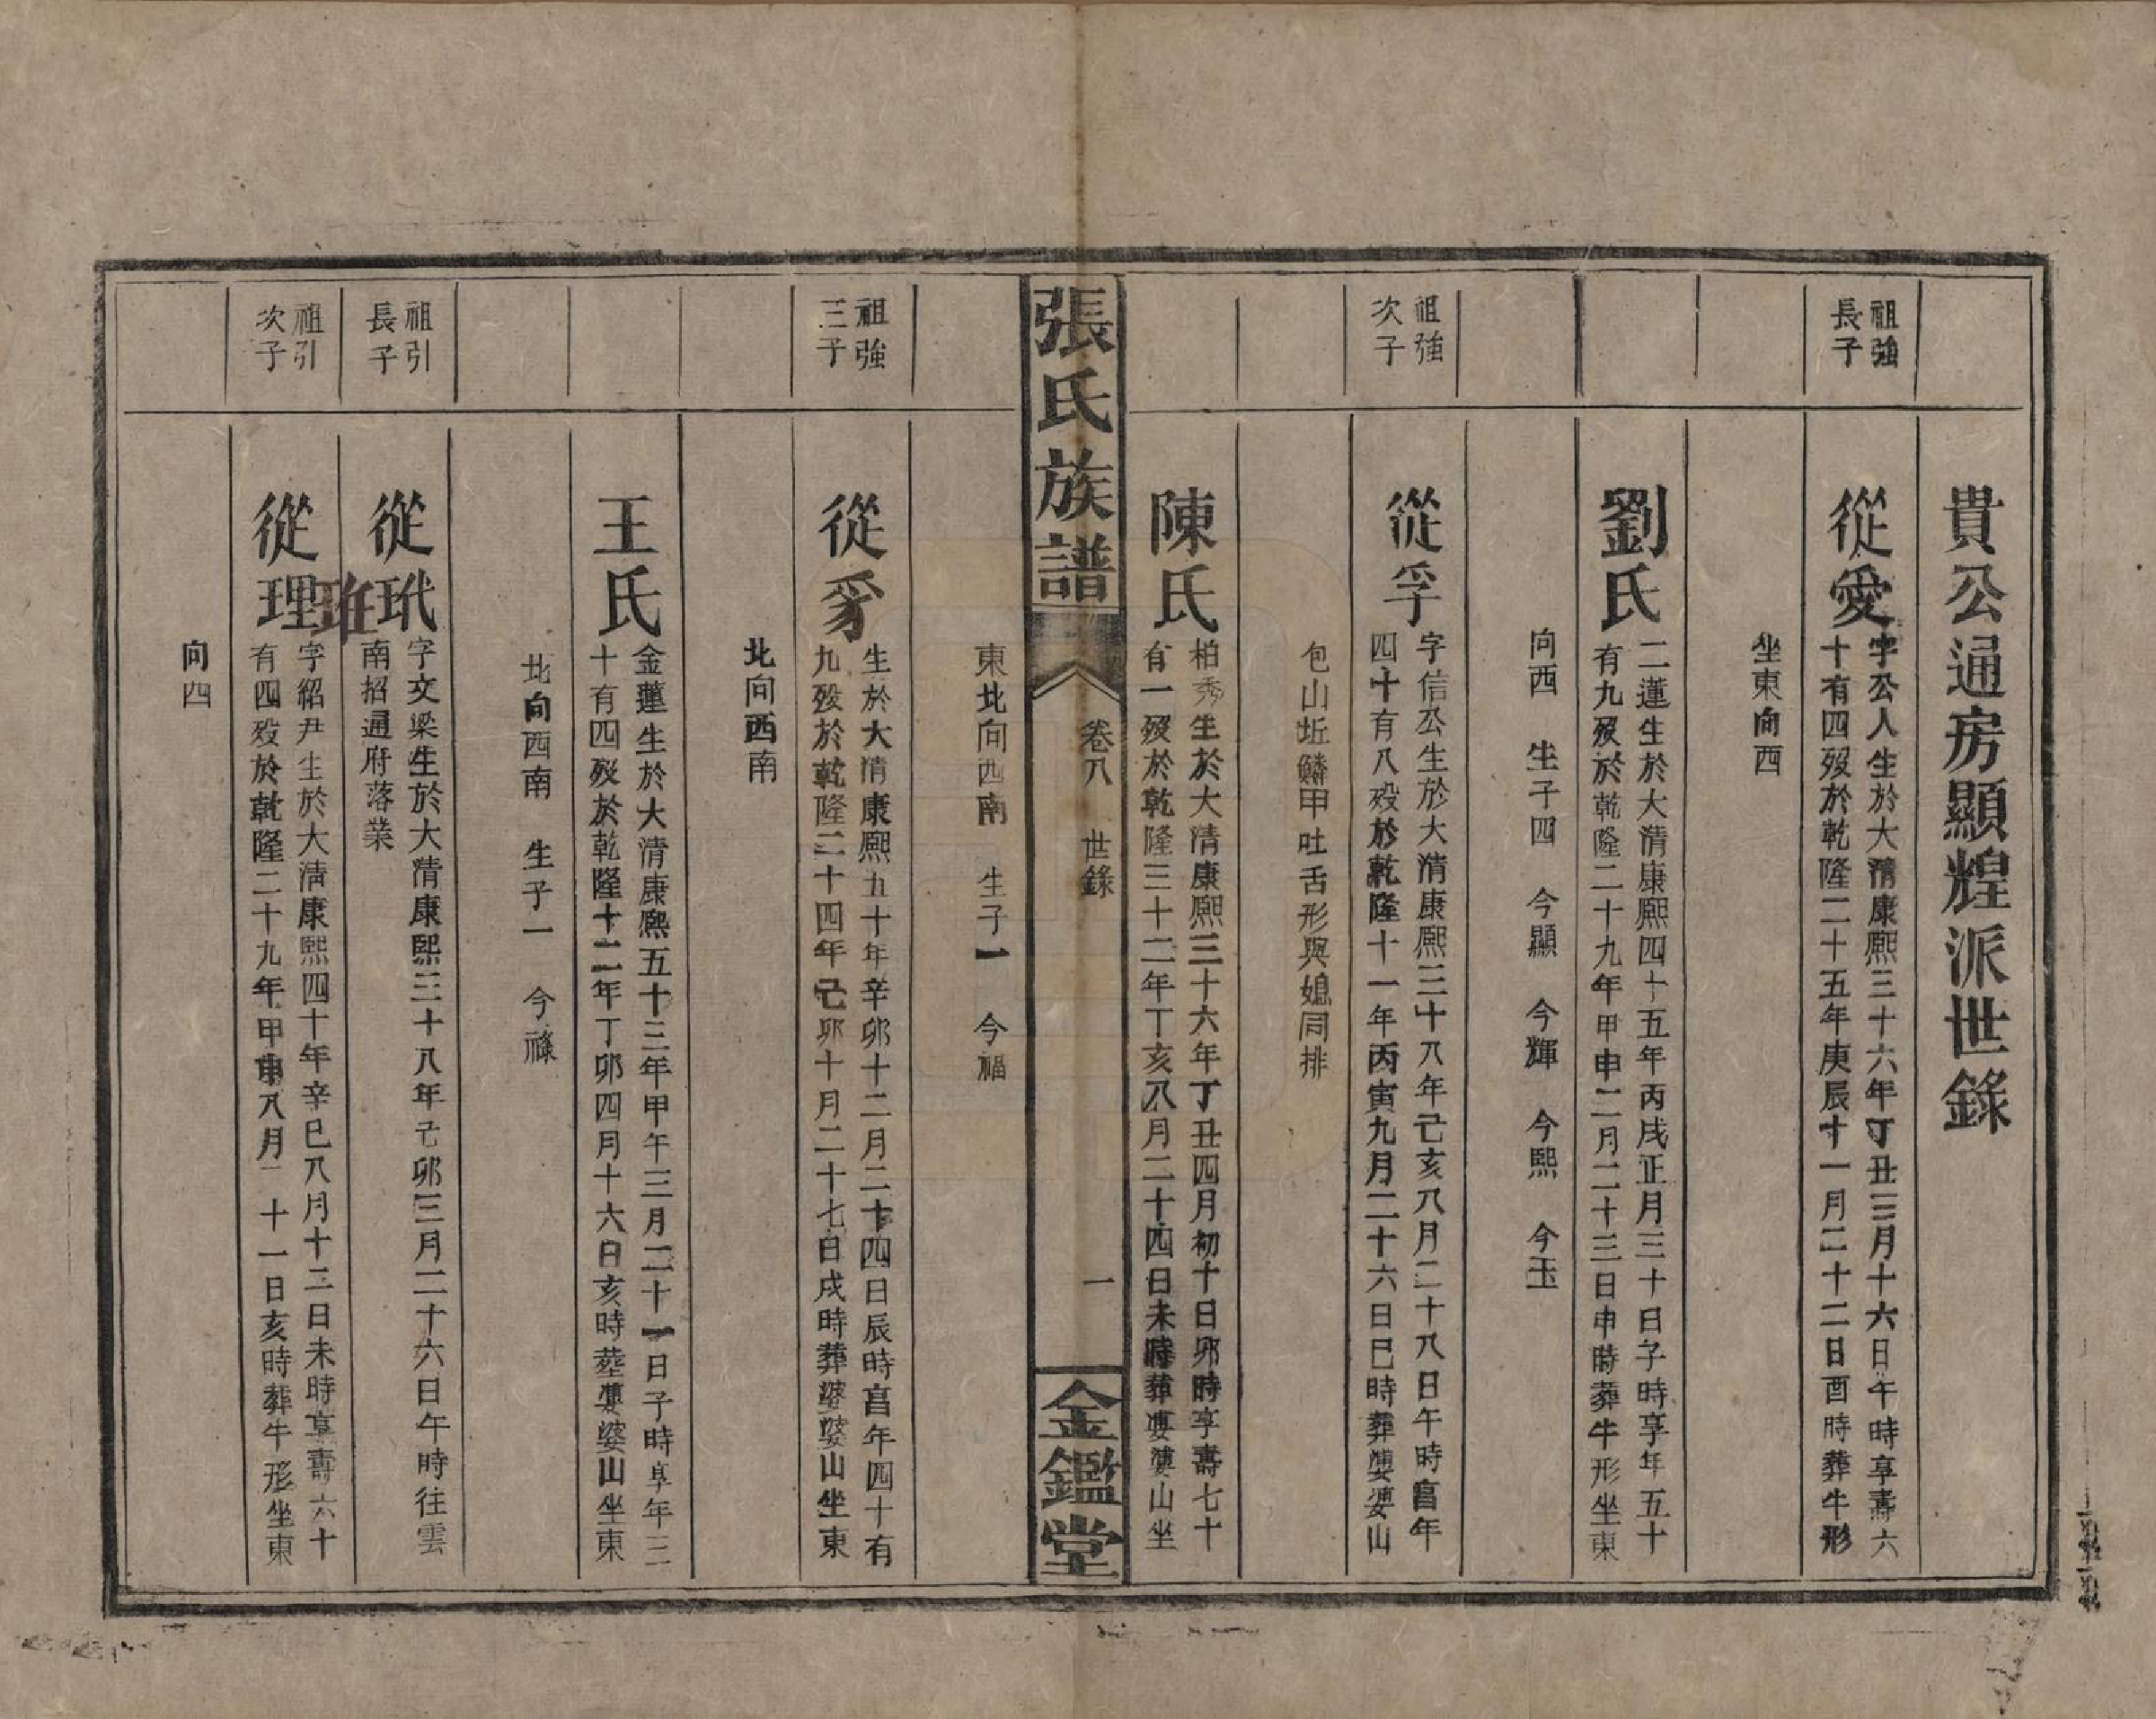 貴公通房顯煌派世錄
祖強
長子
從愛
字公人生於大清康熙三十六年丁丑三月十六日午時享壽六
十有四歿於乾隆二十五年庚辰十一月二十二日酉時葬牛形
坐東向西
劉氏
二蓮生於大清康熙四十五年丙戌正月三十日子時享年五十
有九歿於乾隆二十九年甲申二月二十三日申時葬牛形坐東
向西 生子四 今顯 今輝 今熙 今玉
祖強
次子
從孚
字信公生於大清康熙三十八年己亥八月二十八日午時亯年
四十有八歿於乾隆十一年丙寅九月二十六日巳時葬婆婆山
包山坵鱗甲吐舌形與媳同排
陳氏
柏秀生於大清康熙三十六年丁丑四月初十日卯時享壽七十
有一歿於乾隆三十二年丁亥八月二十四日未時葬婆婆山坐
張氏族譜
卷八 世錄
一
金鑑堂
東北向西南 生子一 今福
祖強
三子
從豸
生於大清康熙五十年辛卯十二月二十四日辰時亯年四十有
九歿於乾隆二十四年己卯十月二十七日戌時葬婆婆山坐東
北向西南
王氏
金蓮生於大清康熙五十三年甲午三月二十一日子時享年三
十有四歿於乾隆十二年丁卯四月十六日亥時葬婆婆山坐東
北向西南 生子一 今祿
祖引
長子
從玳
字文梁生於大清康熙三十八年己卯三月二十六日午時往雲
南招通府落業
祖引
次子
從理
琟
字紹尹生於大清康熙四十年辛巳八月十二日未時享壽六十
有四歿於乾隆二十九年甲申八月二十一日亥時葬牛形坐東
向四